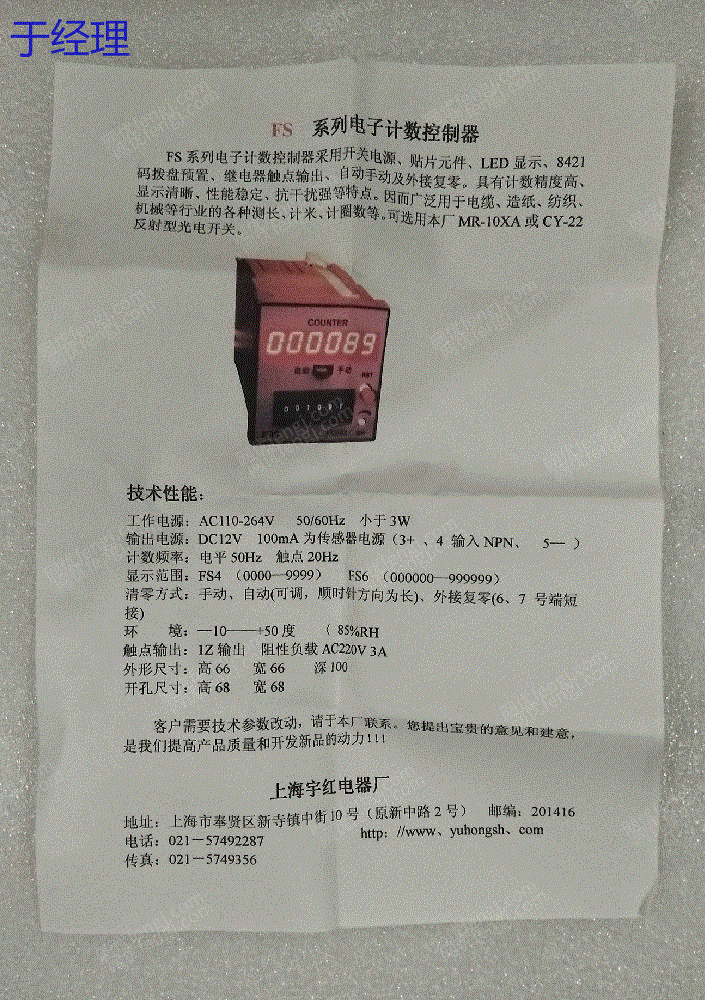 于经理
FS 系列电子计数控制器
FS 系列电子计数控制器采用开关电源、贴片元件、LED 显示、8421
码拨盘预置、继电器触点输出、自动手动及外接复零。具有计数精度高、
显示清晰、性能稳定、抗干扰强等特点。因而广泛用于电缆、造纸、纺织、
机械等行业的各种测长、计米、计圈数等。可选用本厂 MR-10XA 或 CY-22
反射型光电开关。
COUNTER
000089
自动 手动
技术性能：
工作电源：AC110-264V 50/60Hz 小于 3W
输出电源：DC12V 100mA 为传感器电源（3+ 、4 输入 NPN、 5— ）
计数频率：电平 50Hz 触点 20Hz
显示范围：FS4 （0000—9999） FS6 （000000—999999）
清零方式：手动、自动(可调，顺时针方向为长)、外接复零(6、7 号端短
接)
环 境：—10——+50 度 （ 85%RH
触点输出：1Z 输出 阻性负载 AC220V 3A
外形尺寸：高 66 宽 66 深 100
开孔尺寸：高 68 宽 68
客户需要技术参数改动，请于本厂联系。您提出宝贵的意见和建意，
是我们提高产品质量和开发新品的动力！！！
上海宇红电器厂
地址：上海市奉贤区新寺镇中街 10 号（原新中路 2 号） 邮编：201416
电话：021－57492287 http：//www、yuhongsh、com
传真：021－5749356